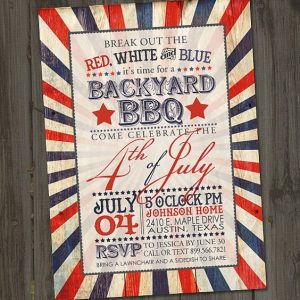 BREAK OUT THE
RED, WHITE and BLUE
it's time for a
BACKYARD
BBQ
COME CELEBRATE THE
4th of July
JULY
04
5 O'CLOCK PM
JOHNSON HOME
2410 E. MAPLE DRIVE
AUSTIN, TEXAS
RSVP
TO JESSICA BY JUNE 30
CALL OR TEXT 899.566.7821
BRING A LAWNCHAIR AND A SIDEDISH TO SHARE